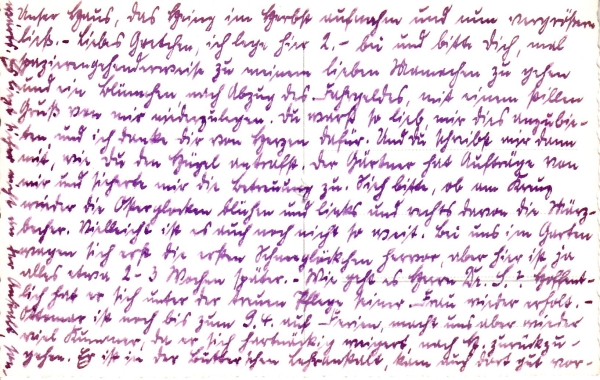 Unser Haus, das Heinz im Herbst aufnahm und nun vergrössern
ließ. - Liebes Gretchen, ich lege hier 2.- bei und bitte Dich, mal
spazierengehenderweise zu meinem lieben Mamachen zu gehen
und ein Blümchen nach Abzug des Fahrgeldes, mit einem stillen
Gruß von mir niederzulegen. Du warst so lieb mir dies anzubie-
ten und ich danke dir von Herzen dafür. Und du schreibst mir dann
mit, wie Du den Hügel antrafst. Der Gärtner hat Aufträge von
mir und sicherte mir die Betreuung zu. Sieh bitte, ob am Kreuz
wieder die Osterglocken blühen und links und rechts davon die März-
becher. Vielleicht ist es auch noch nicht so weit. Bei uns im Garten
wagen sich erst die ersten Schneeglöckchen hervor, aber hier ist ja
alles etwa 2-3 Wochen später. - Wie geht es Herrn Dr. S.? Hoffent-
lich hat er sich unter der treuen Pflege seiner Frau wieder erholt. -
Ottomar ist noch bis zum 9.4. auf Ferien, macht uns aber wieder
viel Kummer, da er sich hartnäckig weigert, nach H. zurückzu-
gehen. Er ist in der Lehranstalt, kam auch dort gut vor-